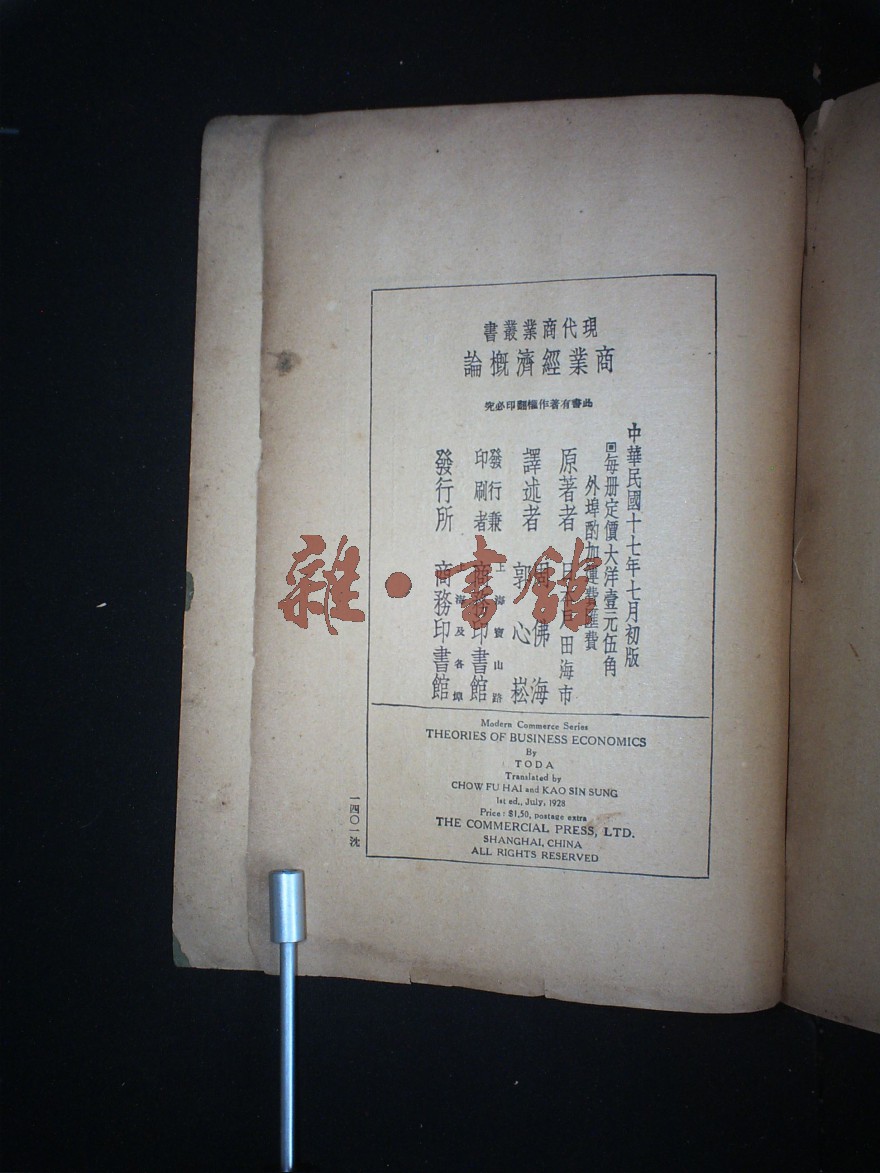 現代商業叢書
商業經濟概論
此書有著作權翻印必究
中華民國十七年七月初版
回每册定價大洋壹元伍角
外埠酌加運費匯費
原著者 日本戶田海市
譯述者 周佛海 郭心崧
發行兼印刷者 上海寶山路 商務印書館
發行所 上海及各埠 商務印書館
Modern Commerce Series
THEORIES OF BUSINESS ECONOMICS
By
TODA
Translated by
CHOW FU HAI and KAO SIN SUNG
1st ed., July, 1928
Price: $1,50, postage extra
THE COMMERCIAL PRESS, LTD.
SHANGHAI, CHINA
ALL RIGHTS RESERVED
一四〇一沈
雜·書館